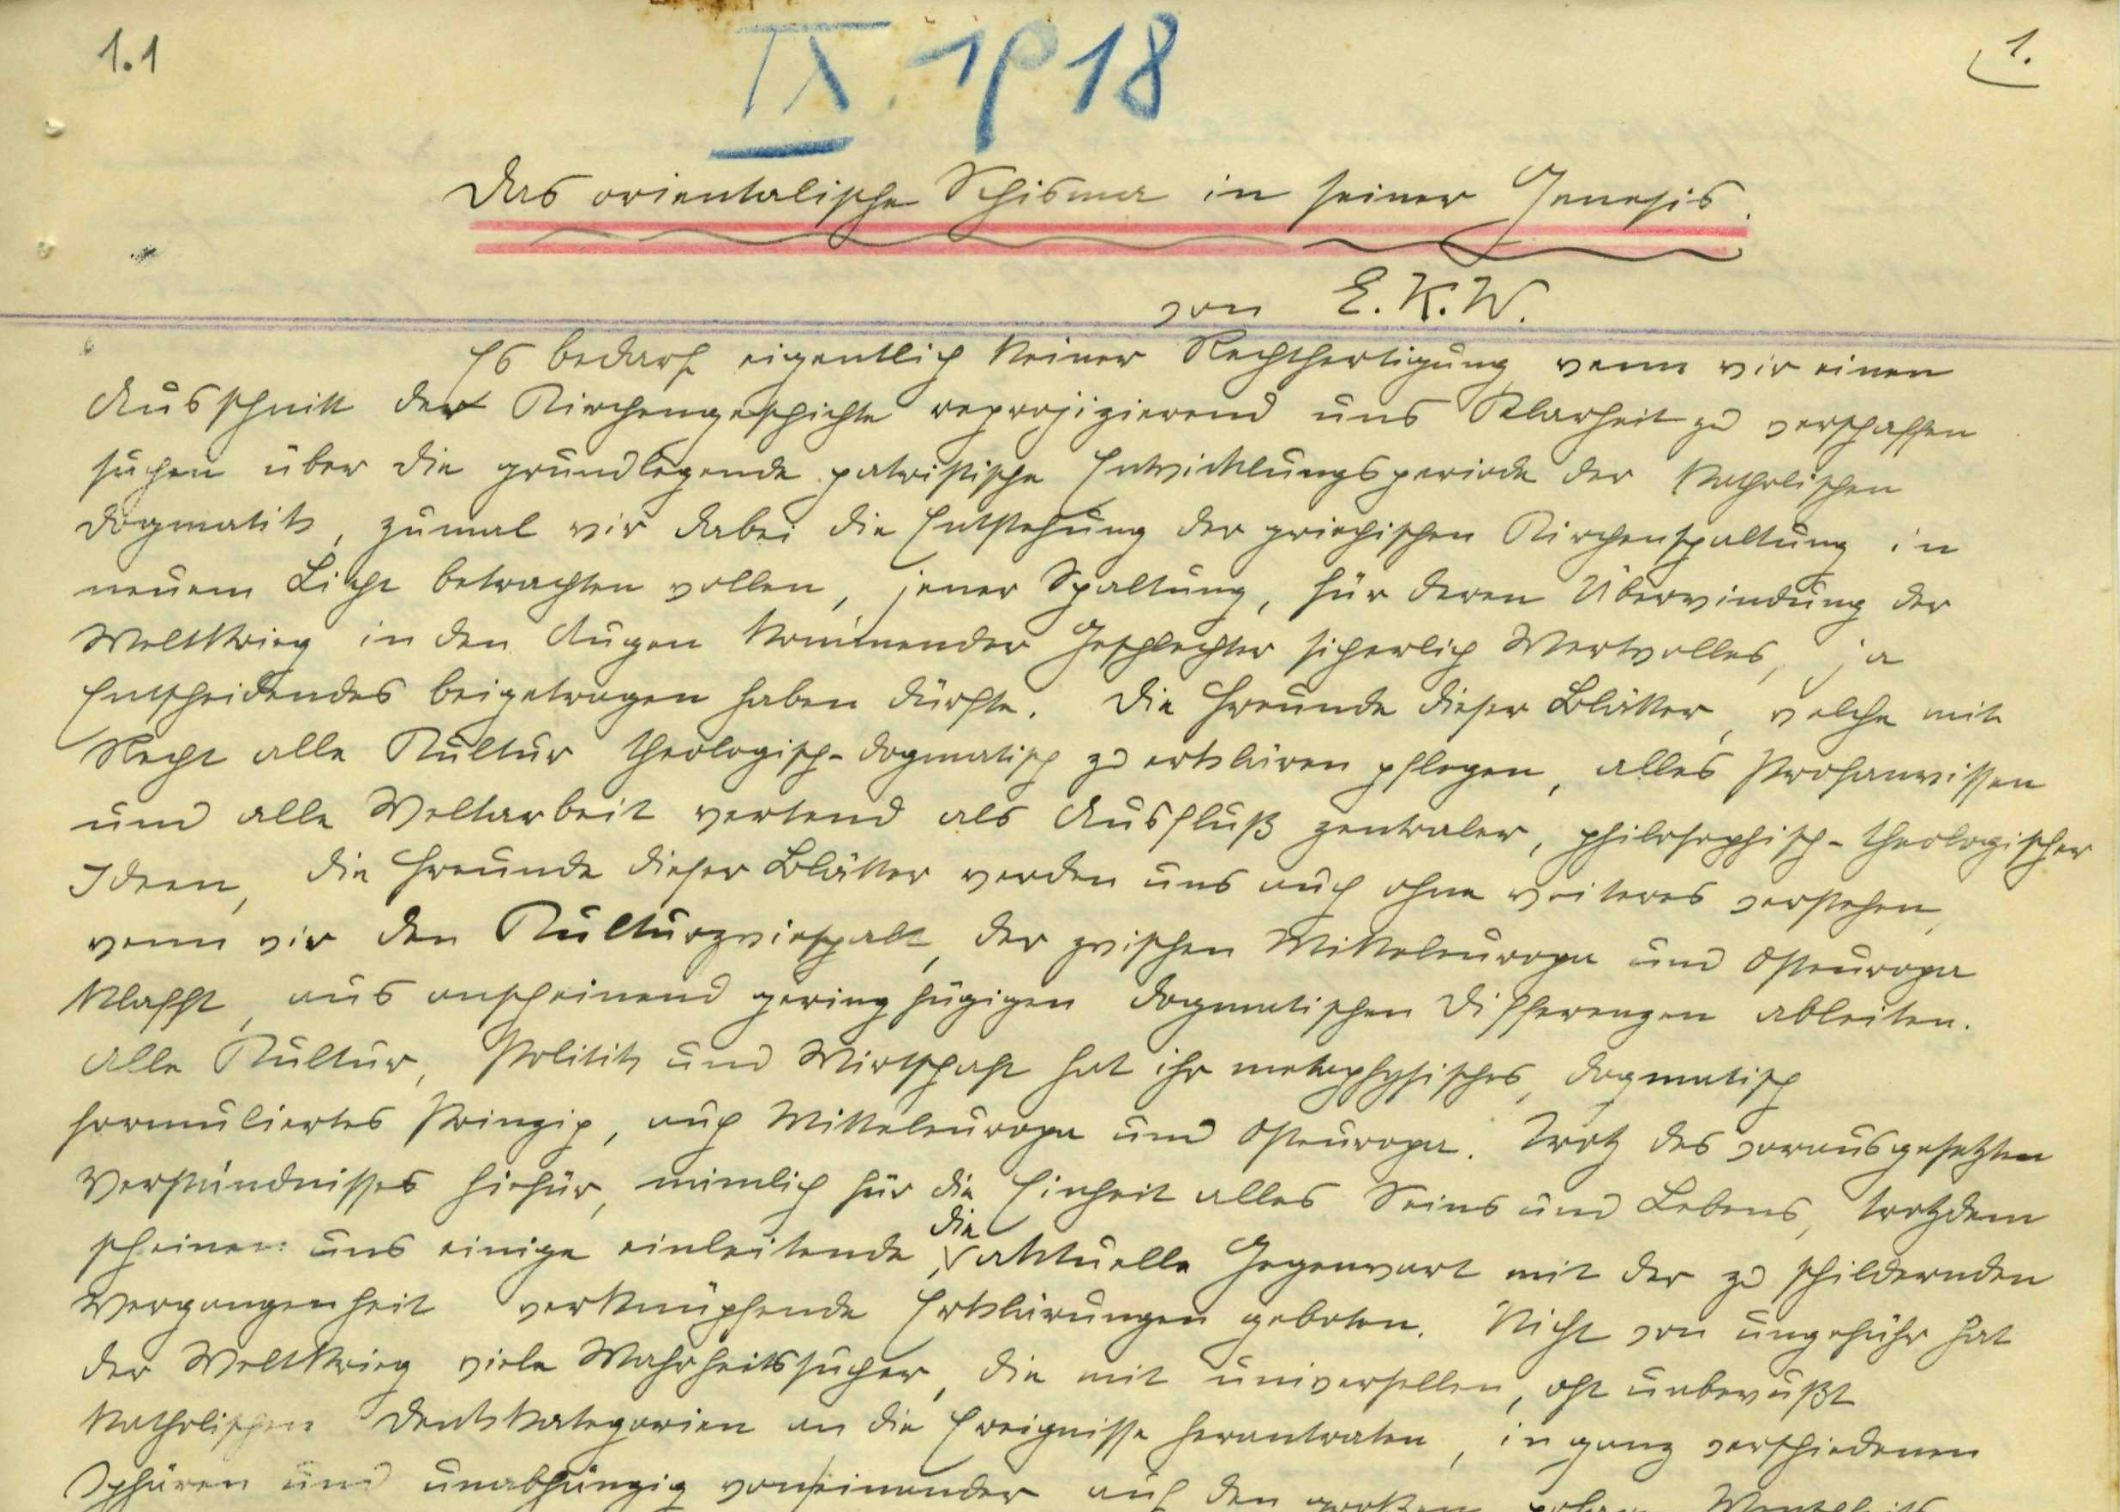 1.1
IX. 1918
1.
Das orientalische Schisma in seiner Genesis.
von E.K.W.
Es bedarf eigentlich keiner Rechtfertigung wenn wir einen
Ausschnitt der Kirchengeschichte reprojizierend uns Klarheit zu verschaffen
suchen über die grundlegende patristische Entwicklungsperiode der katholischen
Dogmatik, zumal wir dabei die Entstehung der griechischen Kirchenspaltung in
neuem Licht betrachten wollen, jener Spaltung, für deren Überwindung der
Weltkrieg in den Augen kommender Geschlechter sicherlich Wertvolles, ja
Entscheidendes beigetragen haben dürfte. Die Freunde dieser Blätter, welche mit
Recht alle Kultur theologisch-dogmatisch zu erklären pflegen, alles Profanwissen
und alle Weltarbeit wertend als Ausfluß zentraler, philosophisch-theologischer
Ideen, die Freunde dieser Blätter werden uns auch ohne weiteres verstehen,
wenn wir den Kulturzwiespalt, der zwischen Mitteleuropa und Osteuropa
klafft, aus anscheinend geringfügigen dogmatischen Differenzen ableiten.
Alle Kultur, Politik und Wirtschaft hat ihr metaphysisches, dogmatisch
formuliertes Prinzip, auch Mitteleuropa und Osteuropa. Trotz des vorausgesetzten
Verständnisses hiefür, nämlich für die Einheit alles Seins und Lebens, trotzdem
scheinen uns einige einleitende, die aktuelle Gegenwart mit der zu schildernden
Vergangenheit verknüpfende Erklärungen geboten. Nicht von ungefähr hat
der Weltkrieg viele Wahrheitssucher, die mit universellen, oft unbewußt
katholischen Denkkategorien an die Ereignisse herantraten, in ganz verschiedenen
Sphären und unabhängig voneinander auf den großen